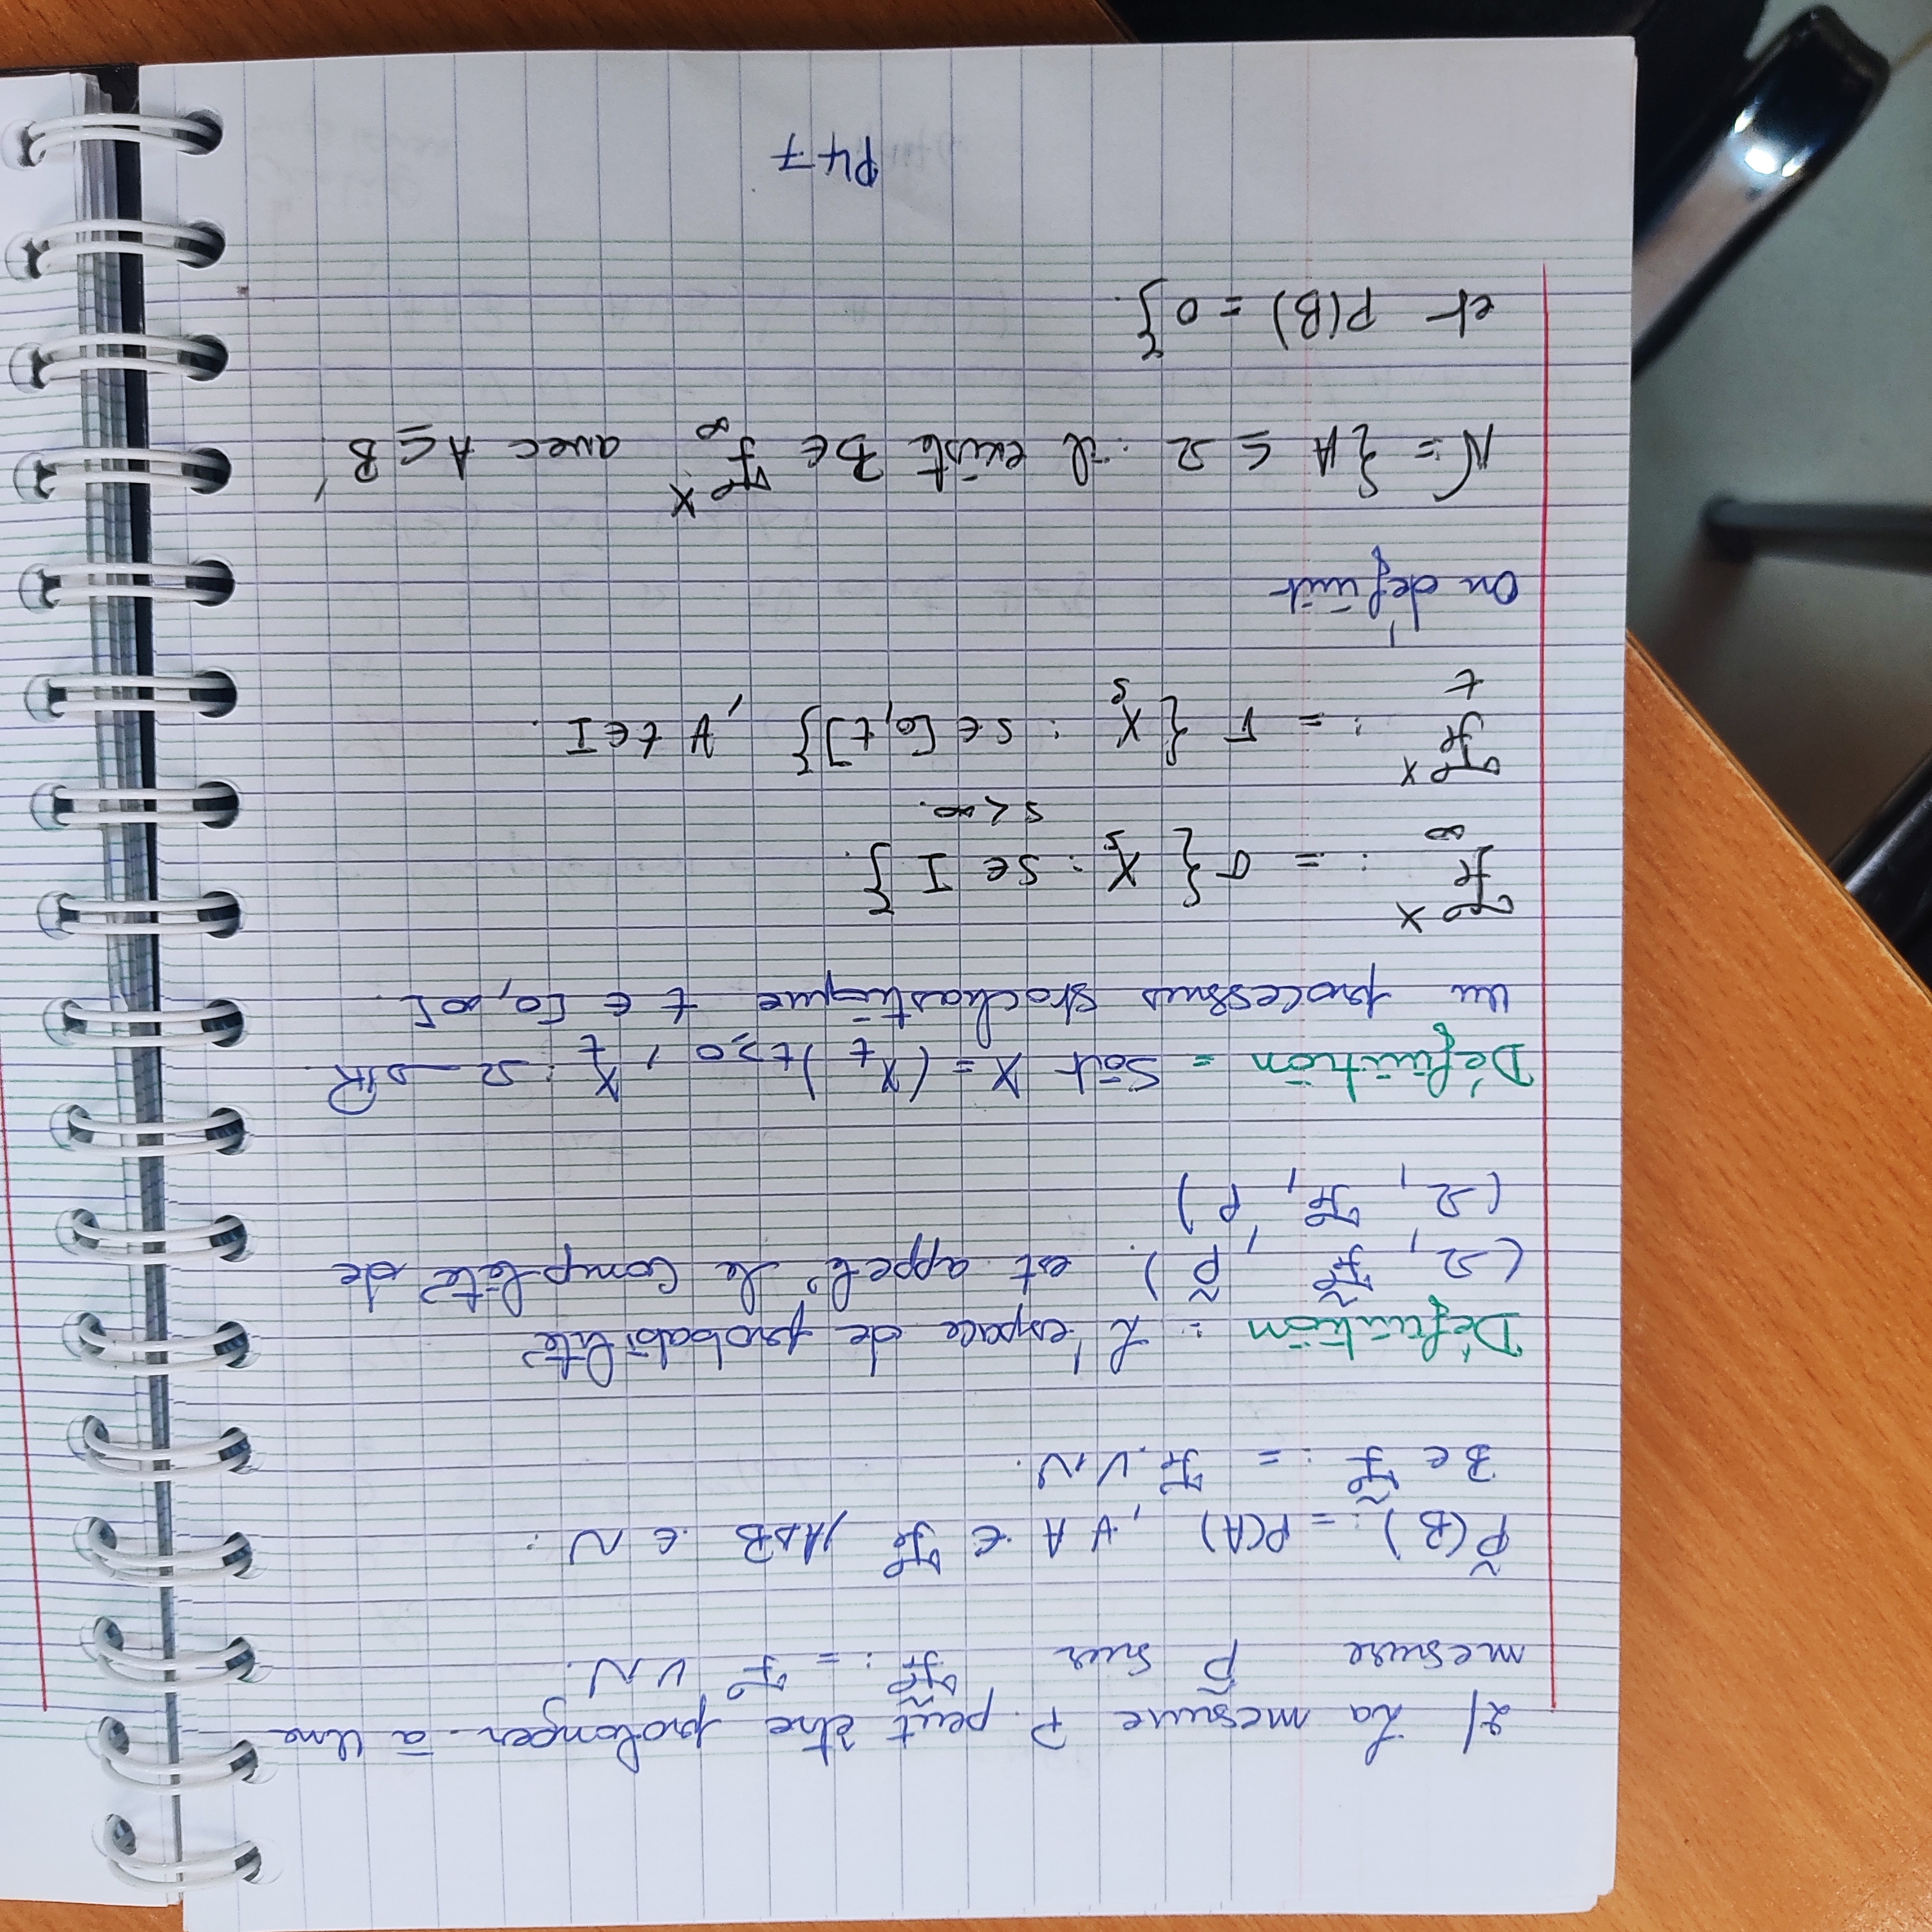 2/ La mesure P. peut être prolonger à une
mesure P̃ sur ℱ̃ := ℱ ∨ N.
P̃(B) := P(A), ∀ A ∈ ℱ, A∆B ∈ N.
B ∈ ℱ̃ := ℱ ∨ N.
Définition : L'espace de probabilité
(Ω, ℱ̃, P̃). est appelé le complété de
(Ω, ℱ, P)
Définition = Soit X = (X_t)_{t≥0}, X_t : Ω → ℝ
un processus stochastique t ∈ [0, ∞[.
ℱ_∞^X := σ{ X_s : s ∈ I }.
s < ∞.
ℱ_t^X := σ{ X_s : s ∈ [0,t] }, ∀ t ∈ I.
On définit
N = { A ⊆ Ω : il existe B ∈ ℱ_∞^X avec A ⊆ B
et P(B) = 0 }.
P47